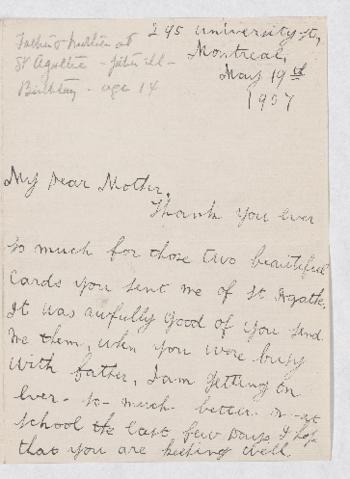 295 University St,
Montreal,
May 19th
1907
Father & Mother at
St Agathe - father ill -
Birthday - age 14
My Dear Mother,
Thank you ever
so much for those two beautiful
Cards you sent me of St Agathe.
It was awfully good of you send
me them, when you were busy
With father, I am getting on
ever - so - much better at
school the last few days, I hope
that you are keeping well.